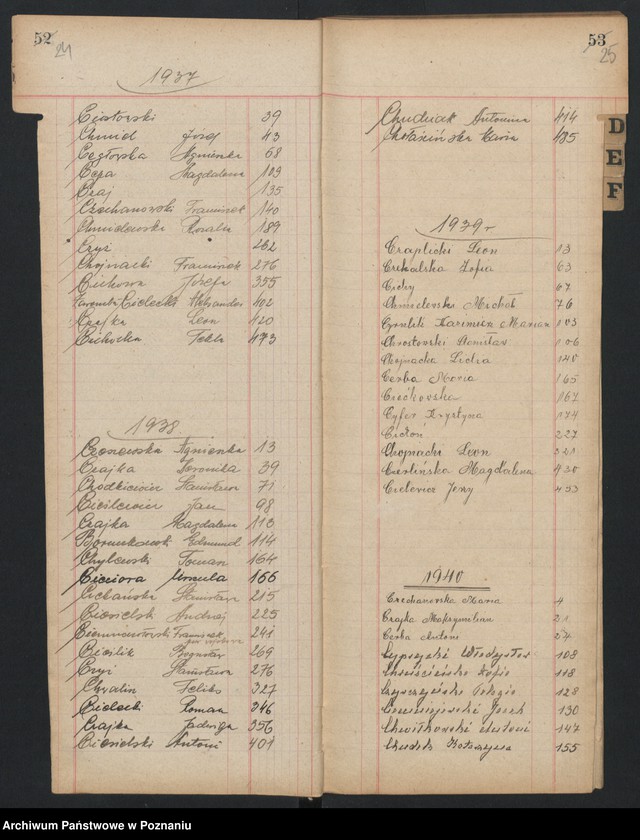 52
24
1937
Ciostowski 39
Chmid Józef 43
Cegłowska Agnieszka 68
Cepa Magdalena 109
Czaj 135
Czechanowski Franciszek 140
Chmielewska Rozalia 189
Czyż 262
Chojnacki Franciszek 276
Cichowa Józefa 355
Cielecki Aleksander 402
Czajka Leon 420
Cichocka Tekla 473
1938
Agnieszka 13
Czajka Weronika 39
Chodkiewicz Stanisława 71
Jan 98
Czajka Magdalena 113
Edmund 114
Chylewski Roman 164
Cieciora Urszula 166
Cichańska Stanisława 215
Ciesielski Andrzej 225
Franciszek 241
Cieślik Bogusław 269
Czyż Stanisława 276
Chwalin Feliks 327
Cielecki Roman 346
Czajka Jadwiga 356
Ciesielski Antoni 401
53
25
Chudziak Antonina 414
Maria 485
D
E
F
1939 r
Czaplicki Leon 13
Zofia 63
Cichy 67
Chmielewski Michał 76
Cynlik Kazimierz Marian 103
Chrostowski Stanisław 106
Chojnacka Lidia 140
Cerba Maria 165
Ciećkowska 167
Cyfer Krystyna 174
Cichoń 227
Chojnacki Leon 321
Cieślińska Magdalena 430
Jerzy 433
1940
Czechanowska Maria 4
Czajka Maksymilian 21
Cerba Antoni 54
Władysław 108
Zofia 118
128
Józef 130
Chwiłkowski Antoni 147
Katarzyna 155
Archiwum Państwowe w Poznaniu